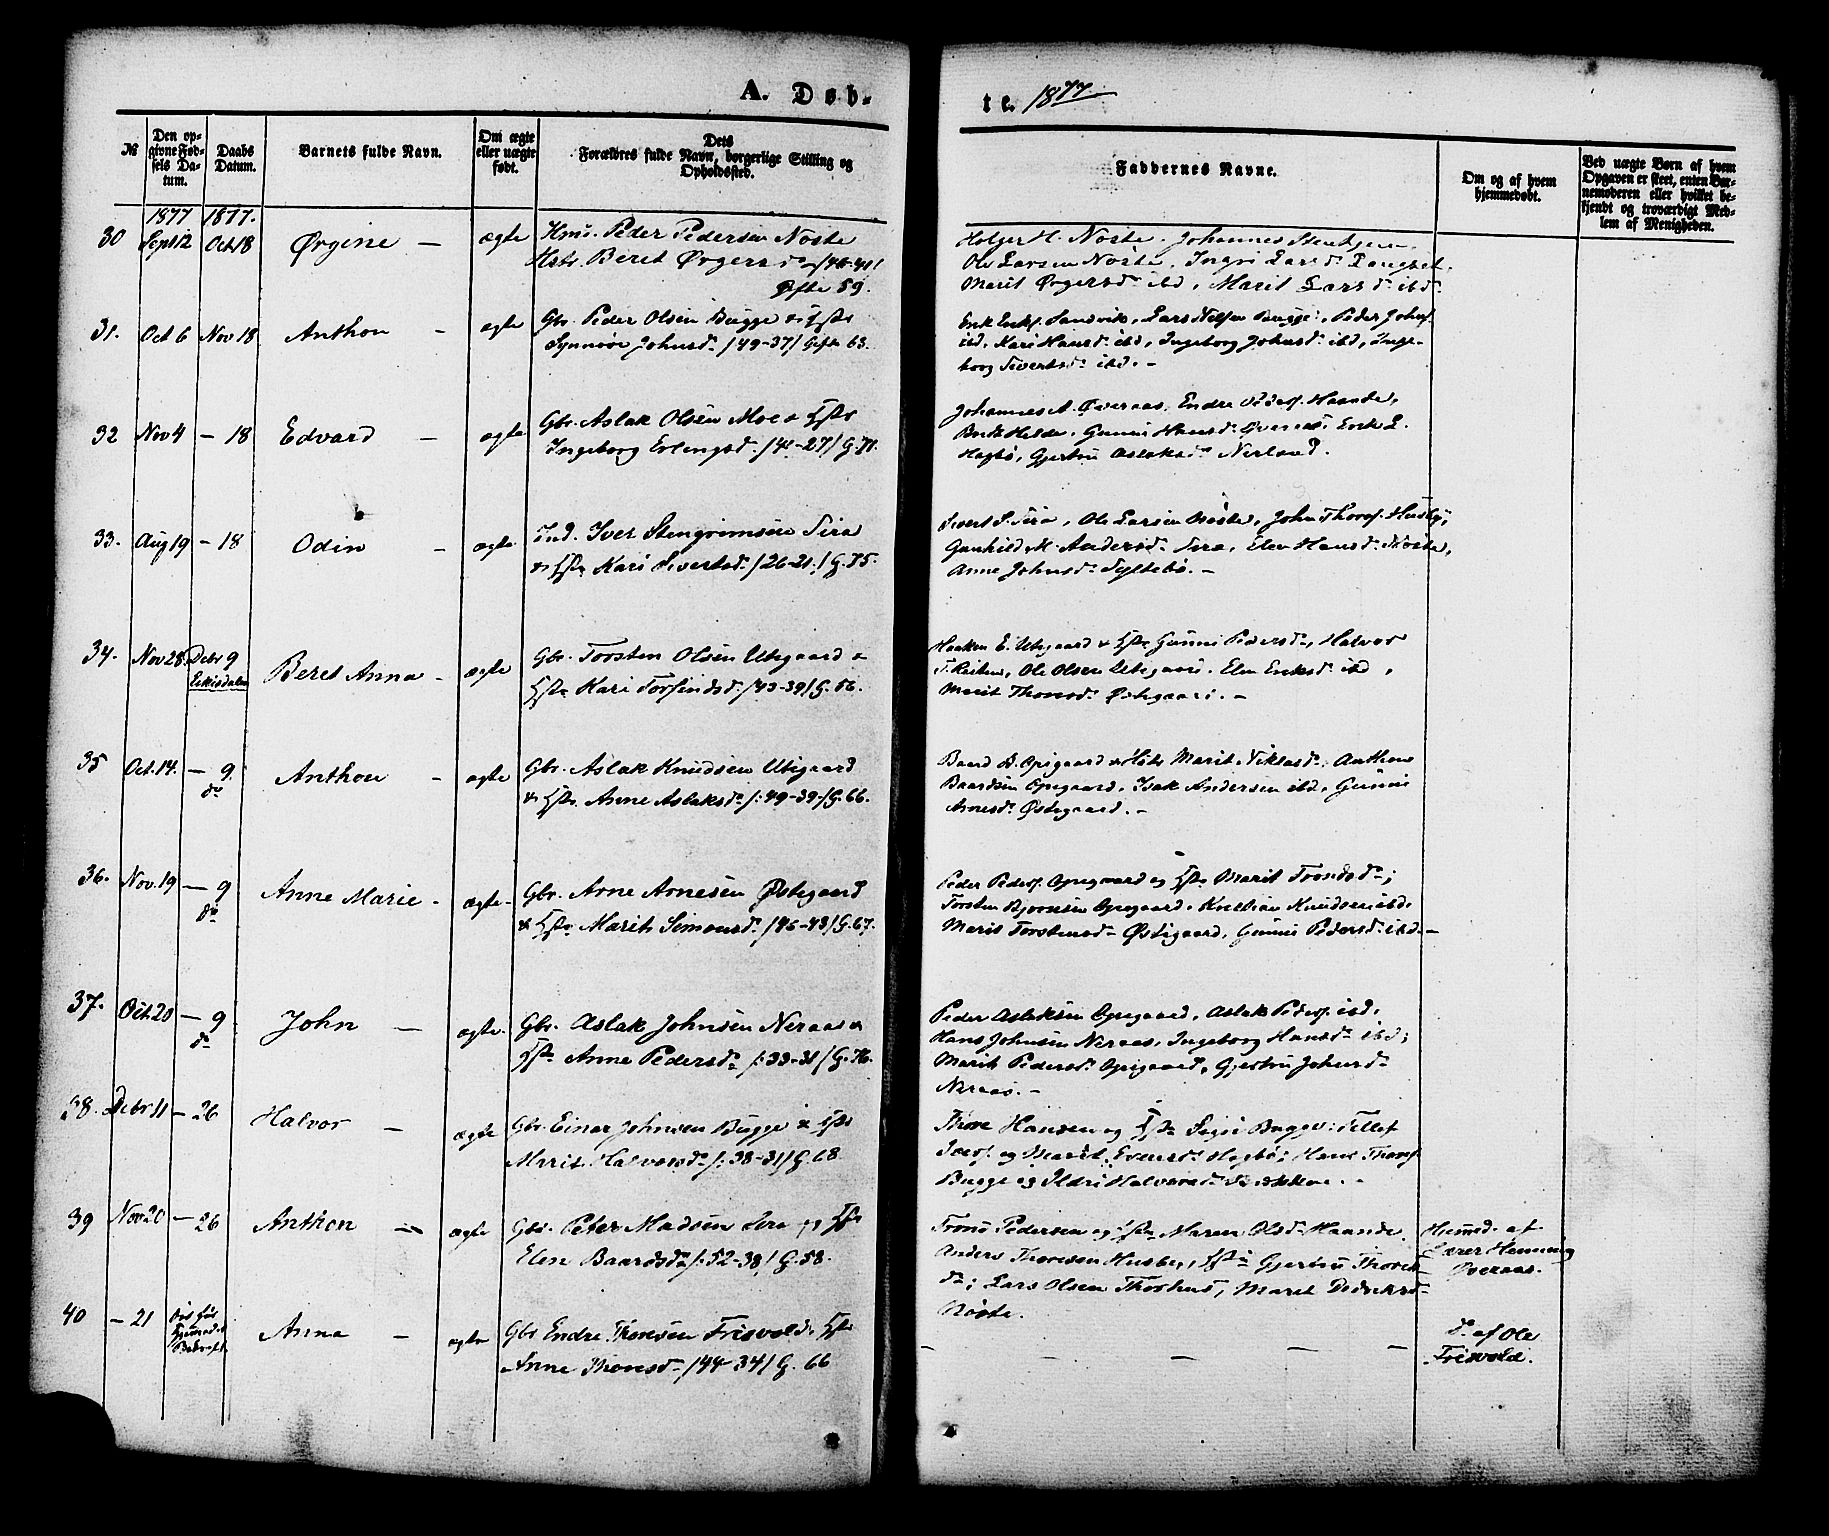 A. Døb-
te. 1877
№
Den opgivne Fødsels Datum.
Daabs Datum.
Barnets fulde Navn.
Om ægte eller uægte født.
Dets Forældres fulde Navn, borgerlige Stilling og Opholdssted.
Faddernes Navne.
Om og af hvem hjemmedøbt.
Ved uægte Børn af hvem Opgaven er skeet, enten Barnemoderen eller hvilket bekjendt og troværdigt Medlem af Menigheden.
1877 1877.
30 Sept 12 Oct 18 Ørgine — ægte Hms. Peder Pedersen Nøste
Hstr. Beret Ørgersdr
Gifte 59.
Holger H. Nøste. Johannes
Ole Larsen Nøste, Ingri Larsd. Langset.
Marit Ørgersd. ibd, Marit Larsd. ibd.
31. Oct 6 Nov 18 Anthon - ægte Gbr. Peder Olsen Bugge & Hstr
Synnøve Johnsd. /49-37/ Gifte 63.
Erik Eriks. Sandvik, Lars Nilsen Bugge, Peder Johns.
ibd. Kari Hansd. ibd, Ingeborg Johnsd. ibd, Inge-
borg Sivertsd. ibd. -
32 Nov 4 — 18 Edvard — ægte Gbr. Aslak Olsen Moe & Hstr
Ingeborg Erlingsd. /41-27/ G. 71.
Johannes A. Øveraas, Endre Haande,
Helde, Gunni Hansd. Øveraas, Erik L.
Hagbø, Gjertru Aslaksd. Nerland.
33. Aug 19 — 18 Odin - ægte Ind. Iver Stengrimsen Sira
& Hstr Kari Sivertsd. /26-21./ G. 75.
Sivert S. Sira, Ole Larsen Nøste, John Thores. Husby,
Gunhild M. Andersd. Sira, Elen Hansd. Nøste,
Anne Johnsd. Syltebø. -
34. Nov 28. Debr 9 Beret Anna - ægte Gbr. Torsten Olsen Utigaard &
Eikisdalen
Hstr Kari Torfindsd. /43-39/ G. 56.
Haaken E. Utigaard & Hstr Gunni Pedersd., Halvor
T. Reiten, Ole Olsen Utigaard. Elen Eriksd. ibd,
Marit Thoresd. Østigaard. -
35 Oct. 14. — 9. Anthon - ægte Gbr. Aslak Knudsen Utigaard
do
& Hstr Anne Aslaksd. /: 49-39-/ G. 66.
Baard B. Opigaard & Hstr Marit Niklasd., Anthon
Baardsen Opigaard, Isak Andersen ibd, Gunni
Arnesd. Østigaard. -
36. Nov. 19 — 9 Anne Marie - ægte- Gbr. Arne Arnesen Østigaard
do
& Hstr Marit Simonsd. /46-43/ G. 67.
Peder Peders. Opigaard og Hstr Marit Trondsd.;
Torsten Bjørnsen Opigaard, Kristian Knudsen ibd.
Marit Torstensd. Østigaard, Gunni Pedersd. ibd.-
37. Oct. 20 — 9 John — ægte. Gbr. Aslak Johnsen Neraas &
do
Hstr Anne Pedersd. /: 33-31/ G. 76.
Peder Aslaksen Opigaard, Aslak Peders. ibd,
Hans Johnsen Neraas, Ingeborg Hansd. ibd;
Marit Pedersd. Opigaard, Gjertru Johnsd.
Neraas. -
38. Debr 11 — 26 Halvor — ægte Gbr. Einar Johnsen Bugge & Hstr
Marit Halvorsd. /: 38-31/ G. 68.
Thore Hansen og Hstr Bugge; Tellef
og Marit Evensd. Hagbø; Hans Thores.
Bugge og Ildri Halvorsd. -
39 Nov 20 — 26 Anthon — ægte Gbr. Peter Madsen Sira og Hstr
Elen Baardsd. /: 52-38/ G. 58.
Trond Pedersen og Hstr Maren Olsd. Haande.
Anders Thoresen Husby, Hstr Gjertru Thores-
dr; Lars Olsen Thorhus, Marit Didriksd.
Nøste.
Hjemmed. af
Lærer Henning
Øveraas.
40 — 21 Anna — ægte Gbr Endre Thoresen Frisvold, Hstr
Anne Thoresd. /44-34/ G. 66
— — — — —
do. af Ole
Frisvold.